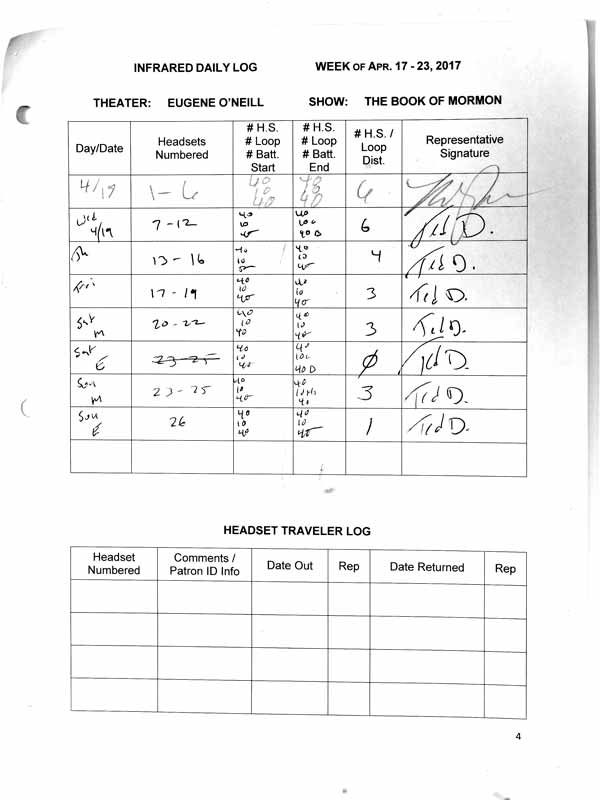 INFRARED DAILY LOG WEEK OF APR. 17 - 23, 2017
THEATER: EUGENE O'NEILL SHOW: THE BOOK OF MORMON
Day/Date Headsets Numbered # H.S. # Loop # Batt. Start # H.S. # Loop # Batt. End # H.S. / Loop Dist. Representative Signature
4/19 1-6 40 10 40 40 6
Wed 4/19 7-12 40 10 40 40 6 Ted D.
13-16 40 10 40 10 40 4 Ted D.
Fri 17-19 40 10 40 40 10 40 3 Ted D.
Sat M 20-22 40 10 40 40 10 40 3 Ted D.
Sat E 23-25 40 10 40 40 40 Ø Ted D.
Sun M 23-25 40 10 40 40 40 3 Ted D.
Sun E 26 40 10 40 40 10 40 1 Ted D.
HEADSET TRAVELER LOG
Headset Numbered Comments / Patron ID Info Date Out Rep Date Returned Rep
4